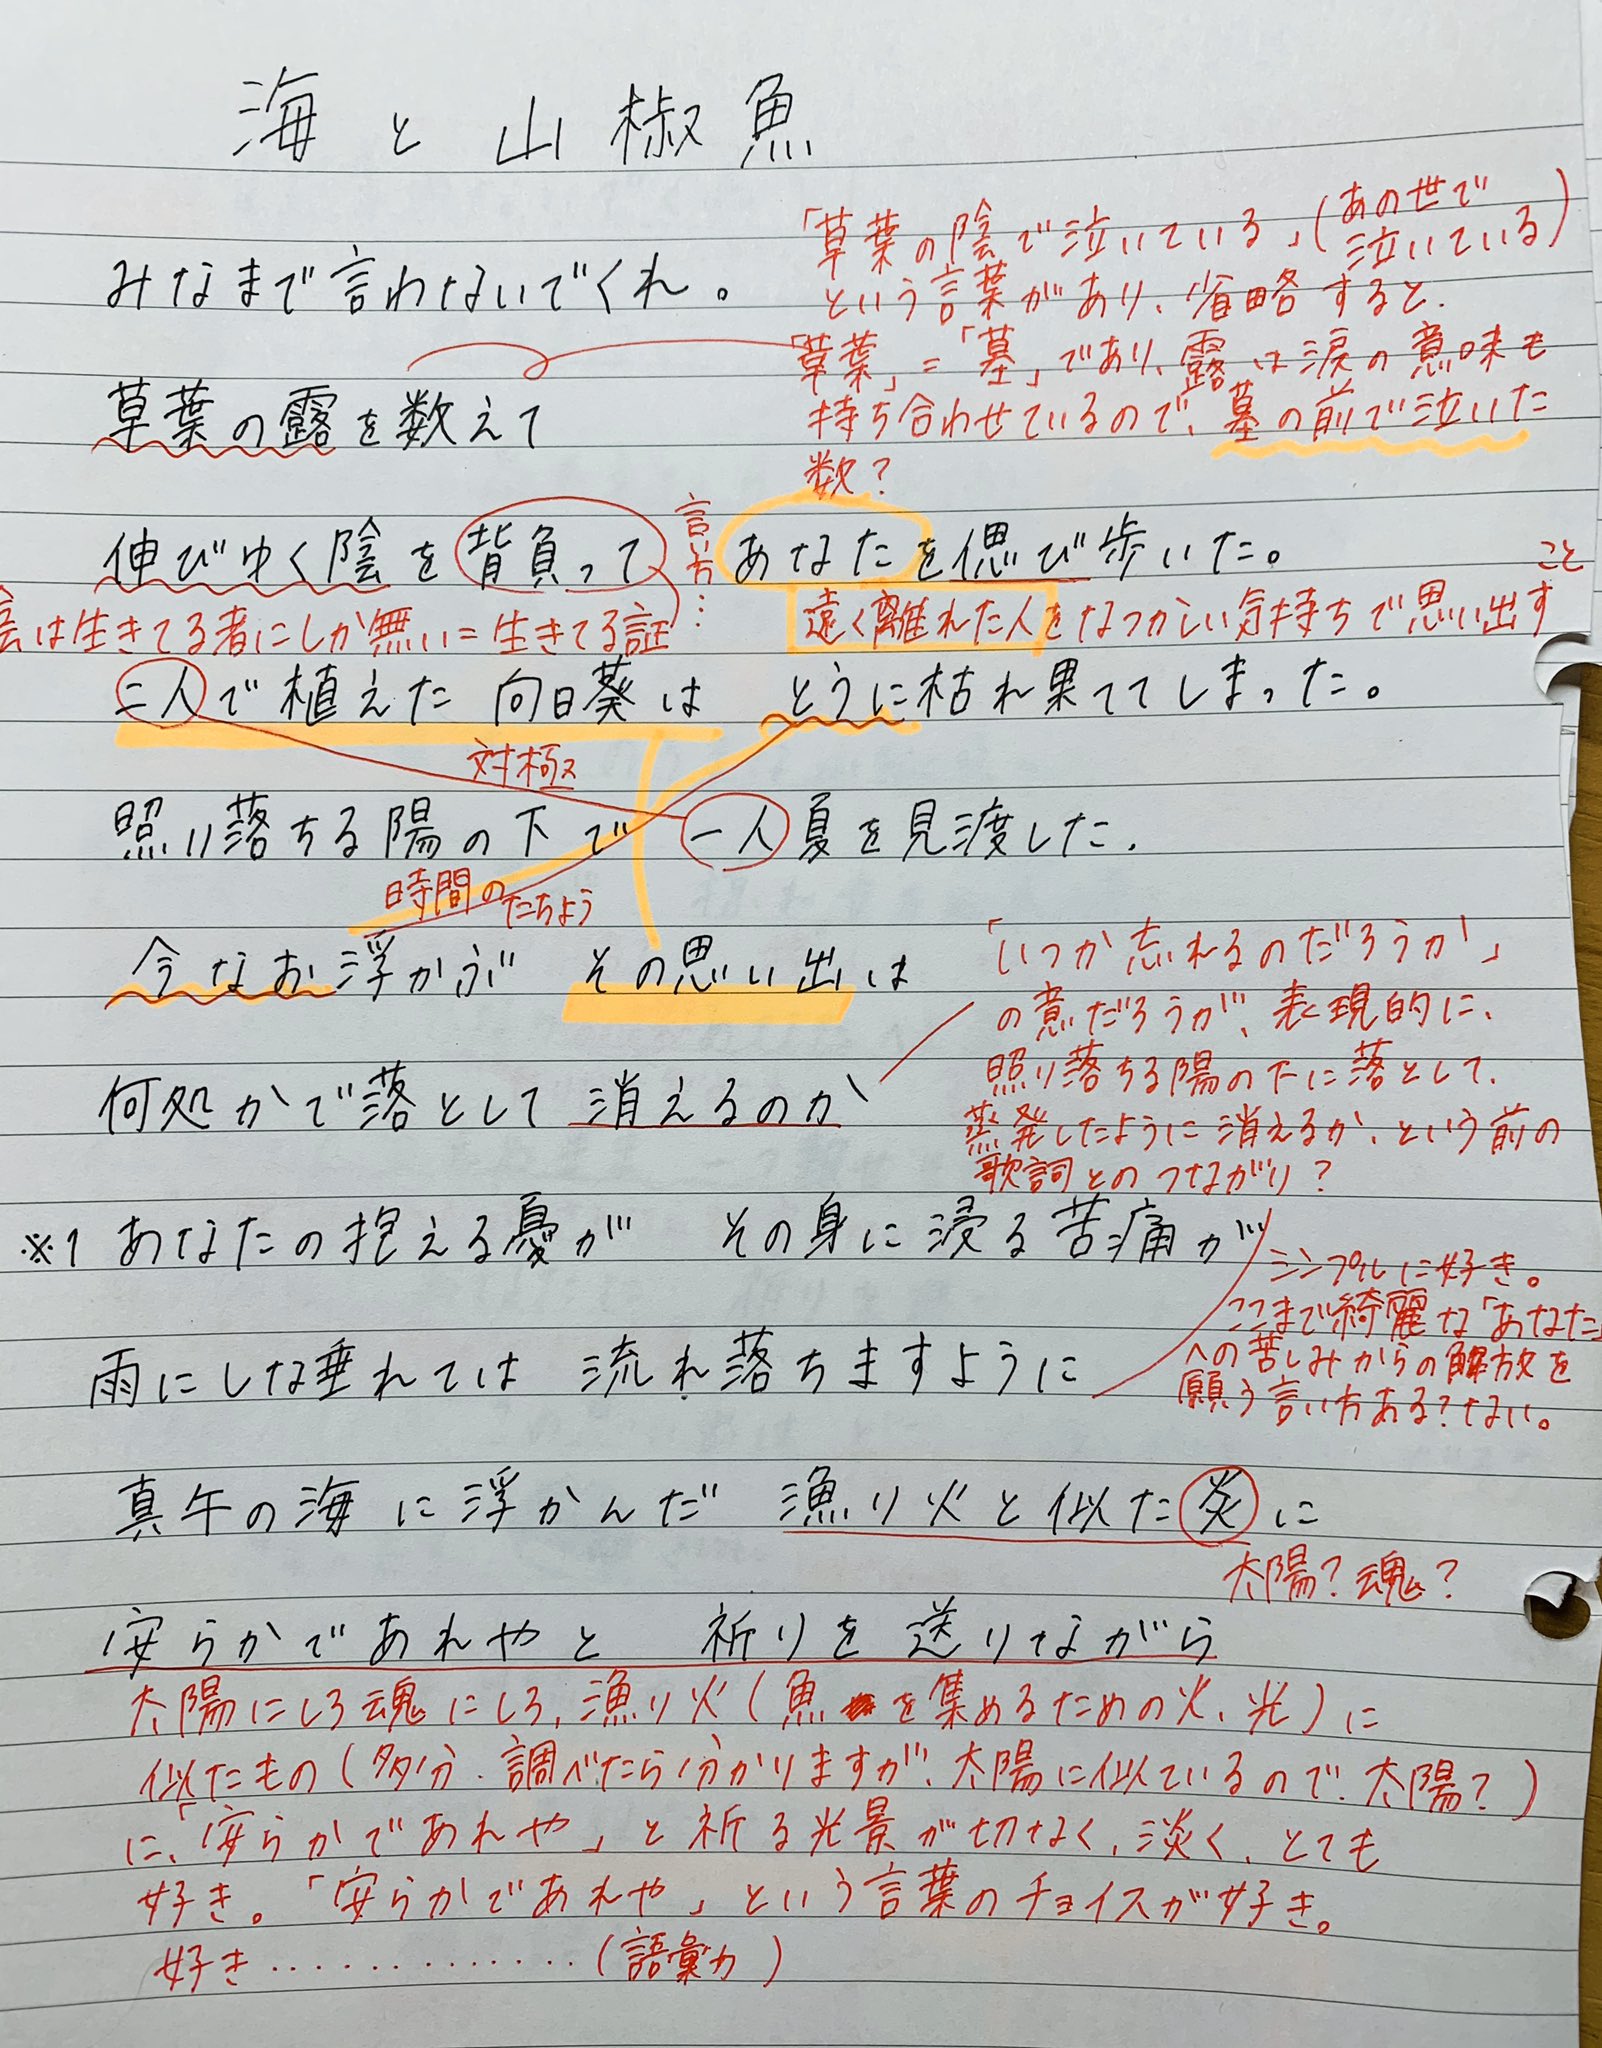 海と山椒魚
「草葉の陰で泣いている」(あの世で
泣いている)
みなまで言わないでくれ。
という言葉があり、省略すると、
「草葉」=「墓」であり、露は涙の意味も
草葉の露を数えて
持ち合わせているので、墓の前で泣いた
数?
伸びゆく陰を背負って あなたを偲び歩いた。
言い方…
陰は生きてる者にしか無い=生きてる証
遠く離れた人をなつかしい気持ちで思い出す
こと
二人で植えた向日葵は とうに枯れ果ててしまった。
対極
照り落ちる陽の下で 一人夏を見渡した.
時間の
たちよう
今なお浮かぶ その思い出は
「いつか忘れるのだろうか」
の意だろうが、表現的に、
照り落ちる陽の下に落として、
何処かで落として消えるのか
蒸発したように消えるか、という前の
歌詞とのつながり?
※1 あなたの抱える憂が その身に浸る苦痛が
シンプルに好き。
ここまで綺麗な「あなた」
への苦しみからの解放を
願う言い方ある?ない。
雨にしな垂れては 流れ落ちますように
真午の海に浮かんだ 漁り火と似た炎に
太陽?魂?
安らかであれやと 祈りを送りながら
太陽にしろ魂にしろ、漁り火(魚を集めるための火、光)に
似たもの(多分、調べたら分かりますが、太陽に似ているので、太陽?)
に、「安らかであれや」と祈る光景が切なく、淡く、とても
好き。「安らかであれや」という言葉のチョイスが好き。
好き............(語彙力)